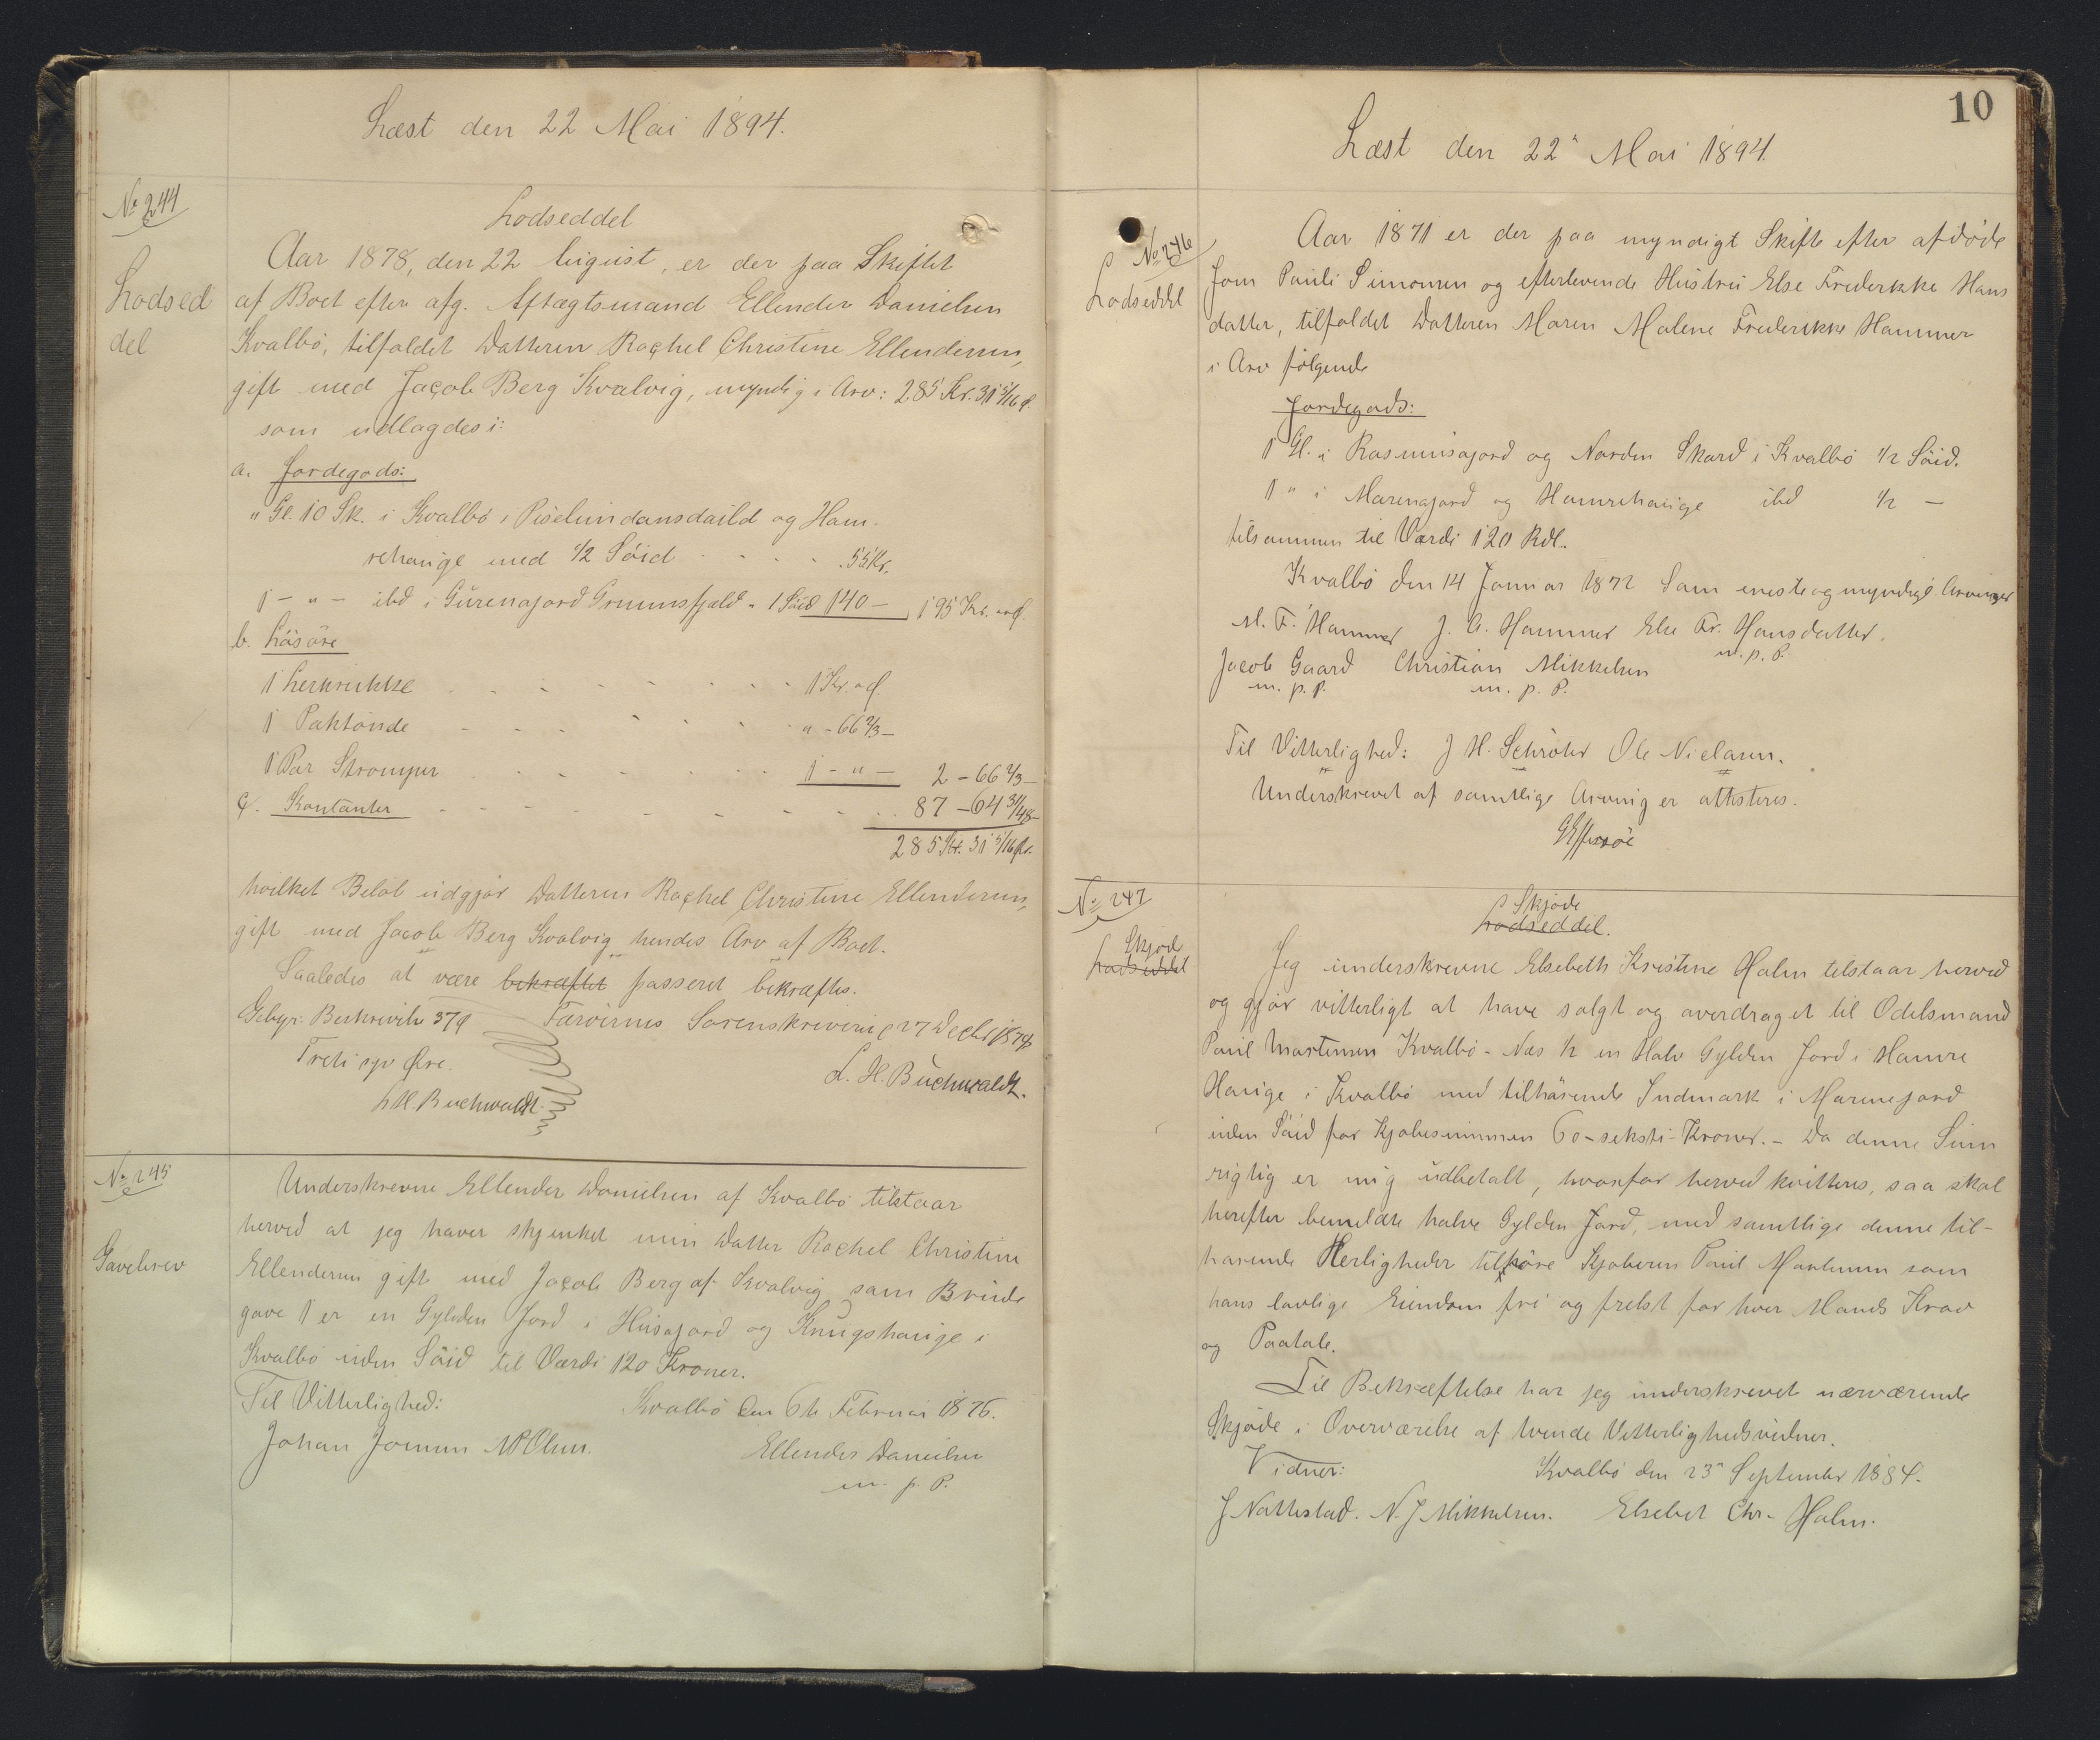 Læst den 22 Mai 1894.
No 244
Lodseddel
Lodseddel
Aar 1878, den 22 August, er der paa Skiftet
af Boet efter afg. Aftægtsmand Ellender Danielsen
Kvalbö, tilfaldet Datteren Rachel Christine Ellendersen,
gift med Jacob Berg Kvalvig, myndig i Arv: 285 Kr. 31 5/16 Ø.
som udlagdes i:
a. Jordegods:
" Gl. 10 Sk. i Kvalbö i Piselundansdaild og Ham-
rehauge med 1/2 Söid . . . . 55 Kr.
1 - " - ibd i Gürenajord Grumsfjæld " 1 Söid 140 - 195 Kr. " Ø.
b. Lösöre
1 Leskrukke . . . . 1 Kr. " Ø.
1 Paktönde . . . . " - 66 2/3 -
1 Par Strömper . . . . 1 - " - 2 - 66 2/3 -
c. Kontanter . . . . 87 - 64 31/48 -
285 Kr. 31 5/16 Ør.
hvilket Belöb udgjör Datteren Rachel Christine Ellendersen,
gift med Jacob Berg Kvalvig hendes Arv af Boet.
Saaledes at være bekræftet passeret bekræftes.
Gebyr: Beskrivelse 37 Ø Færöernes Sorenskriveri, 27 Decbr 1878
Treti syv Øre. L. H. Buchwaldt.
L H. Buchwaldt.
No 245
Gavebrev
Underskrevne Ellender Danielsen af Kvalbö tilstaar
herved at jeg haver skjenket min Datter Rachel Christine
Ellendersen gift med Jacob Berg af Kvalvig som Brude
gave 1 er en Gylden Jord i Husajord og Knugshauge i
Kvalbö uden Söid til Værdi 120 Kroner.
Til Vitterlighed: Kvalbö den 6te Februar 1876.
Johan Joensen MP Olsen. Ellender Danielsen
m. p. P.
10
Læst den 22" Mai 1894.
No 246
Lodseddel
Aar 1871 er der paa myndigt Skifte efter afdöde
Joen Pauli Simonsen og efterlevende Hustru Else Frederikke Hans
datter, tilfaldet Datteren Maren Malene Frederikke Hammer
i Arv fölgende
Jordegods:
1 Gl. i Rasmusajord og Norden Skard i Kvalbö 1/2 Söid.
1 " i Marenajord og Hamrehauge ibd 1/2 -
tilsammen til Værdi 120 Rdl.
Kvalbö den 14 Januar 1872 Som eneste og myndige Arvinger
M. F. Hammer J. A. Hammer Else Fr. Hansdatter.
m. p. P.
Jacob Gaard Christian Mikkelsen
m. p. P. m. p. P.
Til Vitterlighed: J H. Schröter Ole Nielasen.
Underskrevet af samtlige Arvinger attesteres.
G Effersöe
No 247
Skjöde
Lodseddel.
Skjöde
Lodseddel
Jeg underskrevne Elsebeth Kristine Holm tilstaar herved
og gjör vitterligt at have solgt og overdraget til Odelsmand
Poul Mortensen Kvalbö-Næs 1/2 en Halv Gylden Jord i Hamre
Hauge i Kvalbö med tilhörende Indmark i Marnejord
uden Söid for Kjöbesummen 60 - seksti - Kroner. - Da denne Sum
rigtig er mig udbetalt, hvorfor herved kvitteres, saa skal
herefter bemeldte halve Gylden Jord, med samtlige denne til-
hörende Herligheder tilhöre Kjöberen Poul Mortensen som
hans lovlige Eiendom fri og frelst for hver Mands Krav
og Paatale.
Til Bekræftelse har jeg underskrevet nærværende
Skjöde i Overværelse af tvende Vitterlighedsvidner.
Vidner: Kvalbö den 23" September 1884.
J Nattestad. N. J Mikkelsen. Elsebet Chr. Holm.